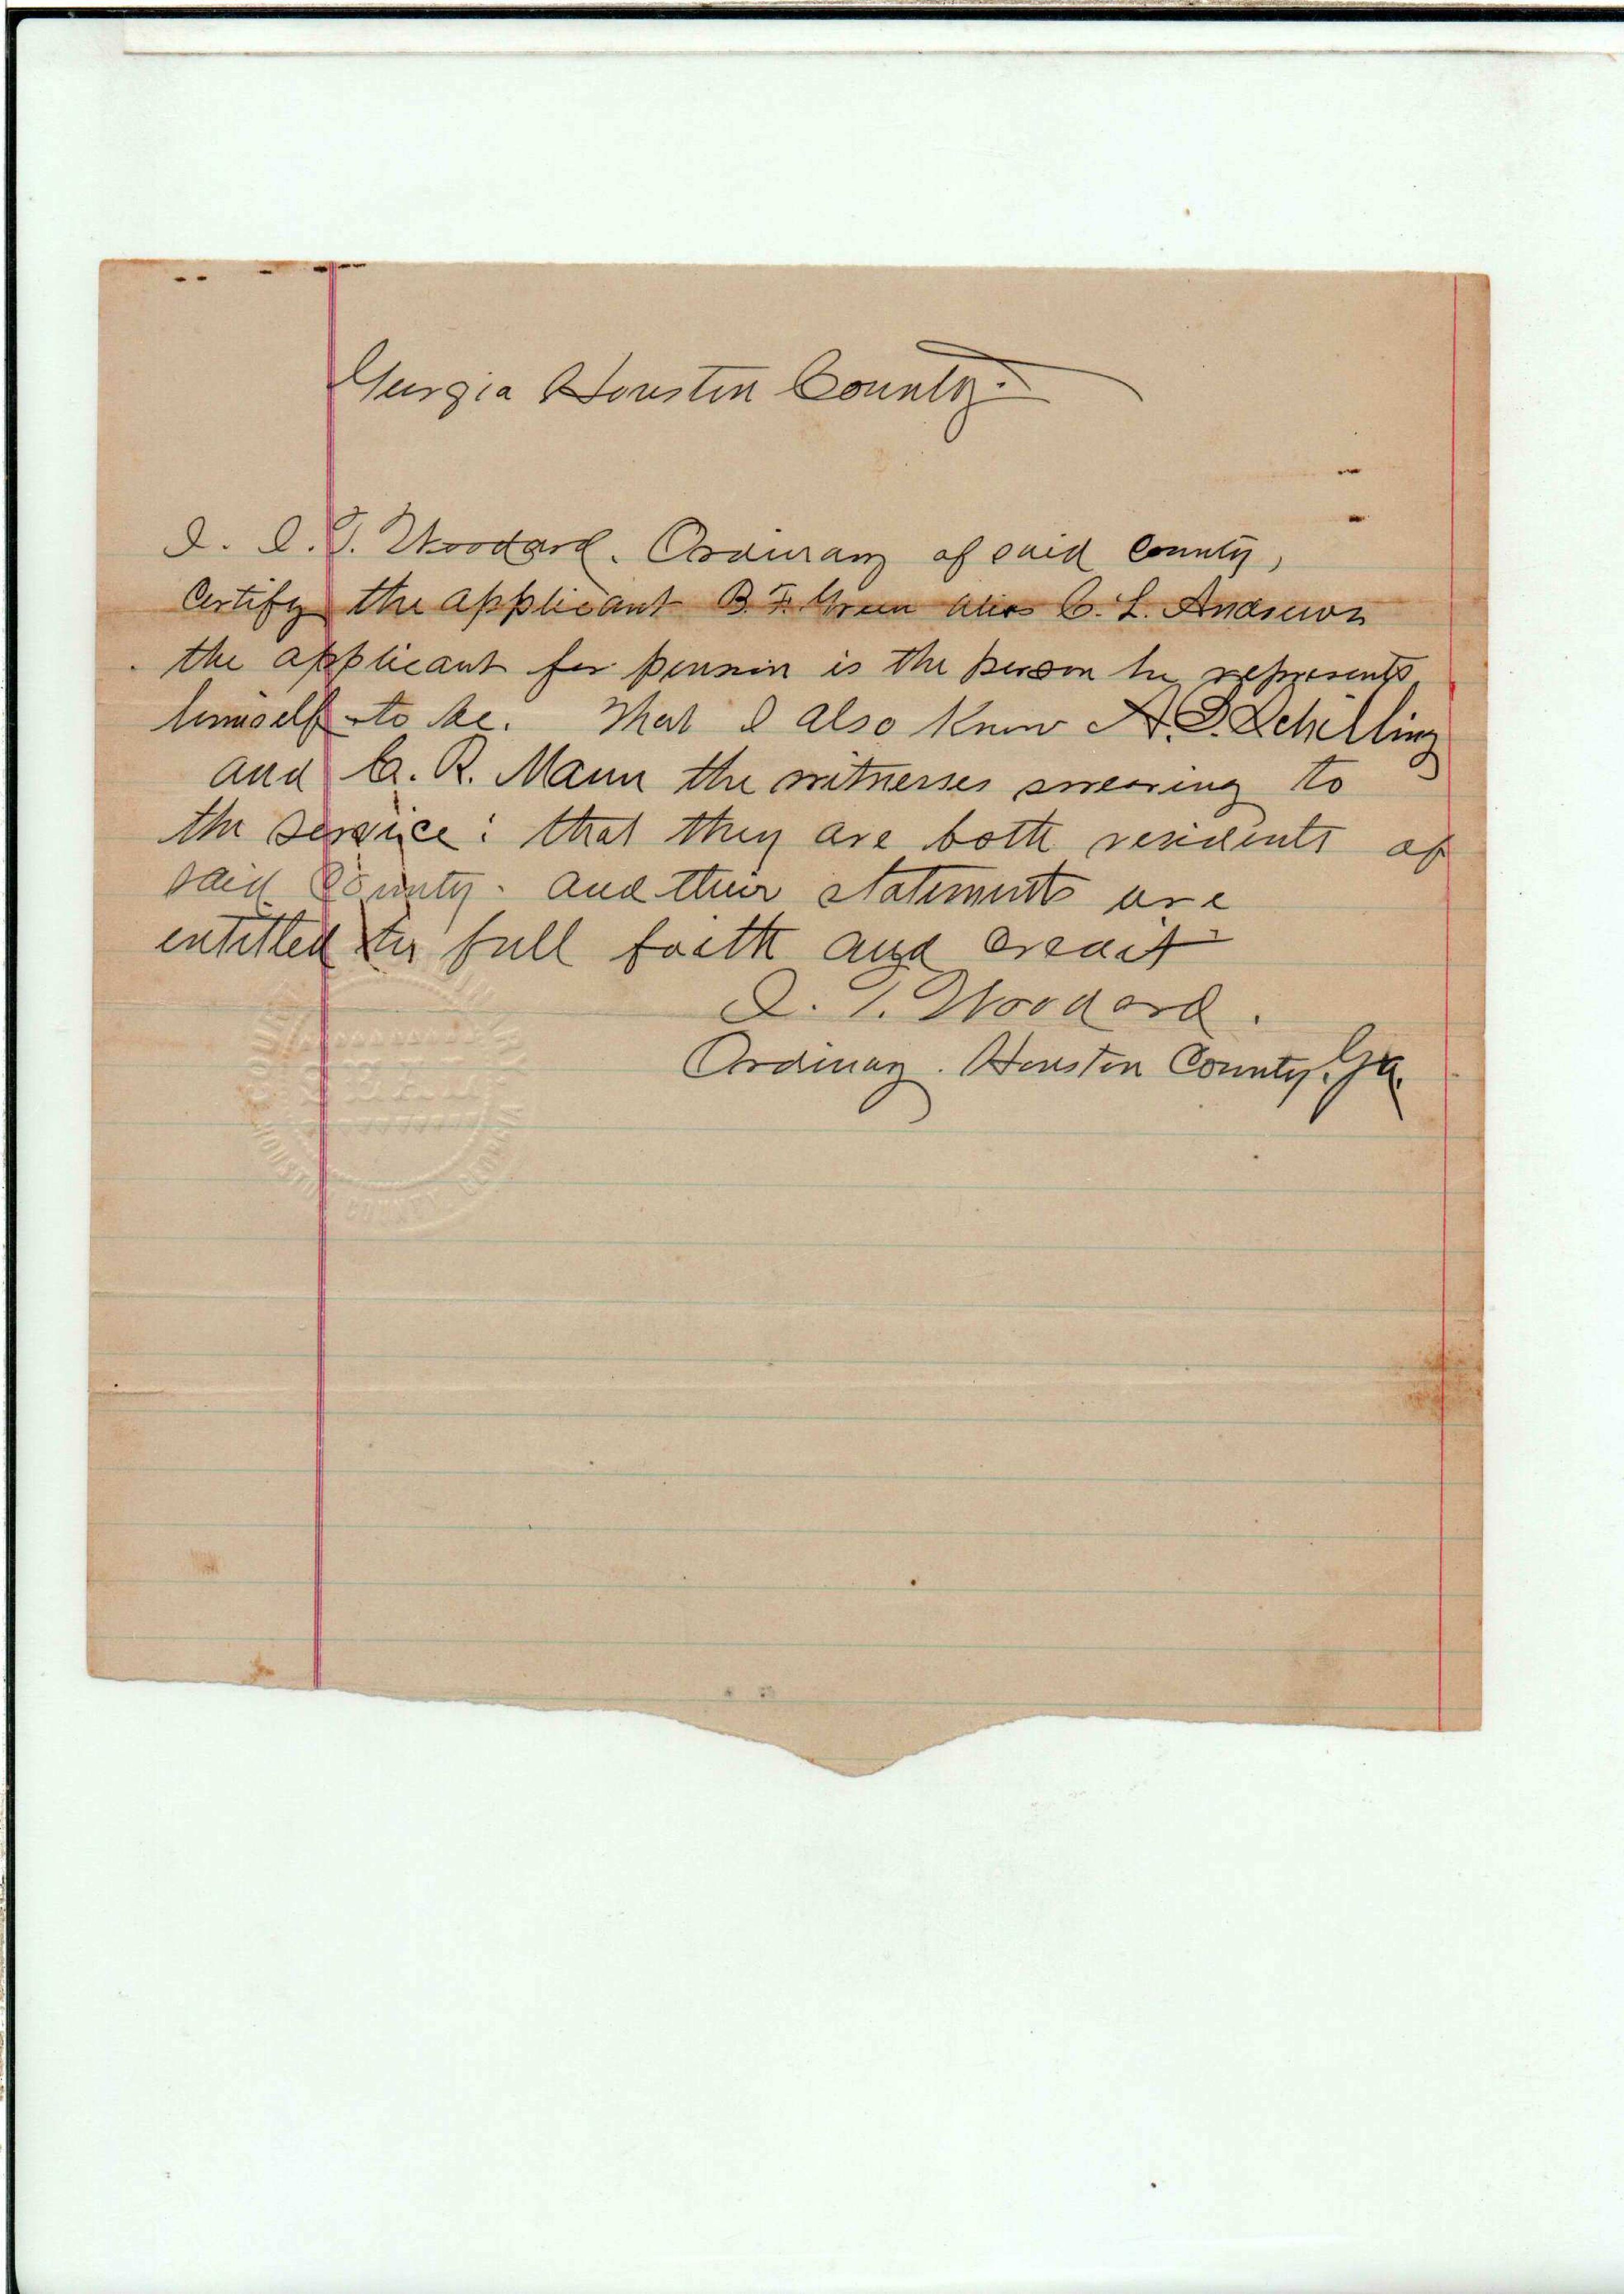 Georgia Houston County.
I. I. T. Woodard. Ordinary of said County,
Certify the applicant B. F. Green alias C. L. Andrews
the applicant for pension is the person he represents
himself to be. That I also know A. S. Schilling
and C. R. Mann the witnesses swearing to
the service: that they are both residents of
said County. and their statements are
entitled to full faith and credit
I. T. Woodard.
Ordinary. Houston County, Ga.
HOUSTON COUNTY GEORGIA